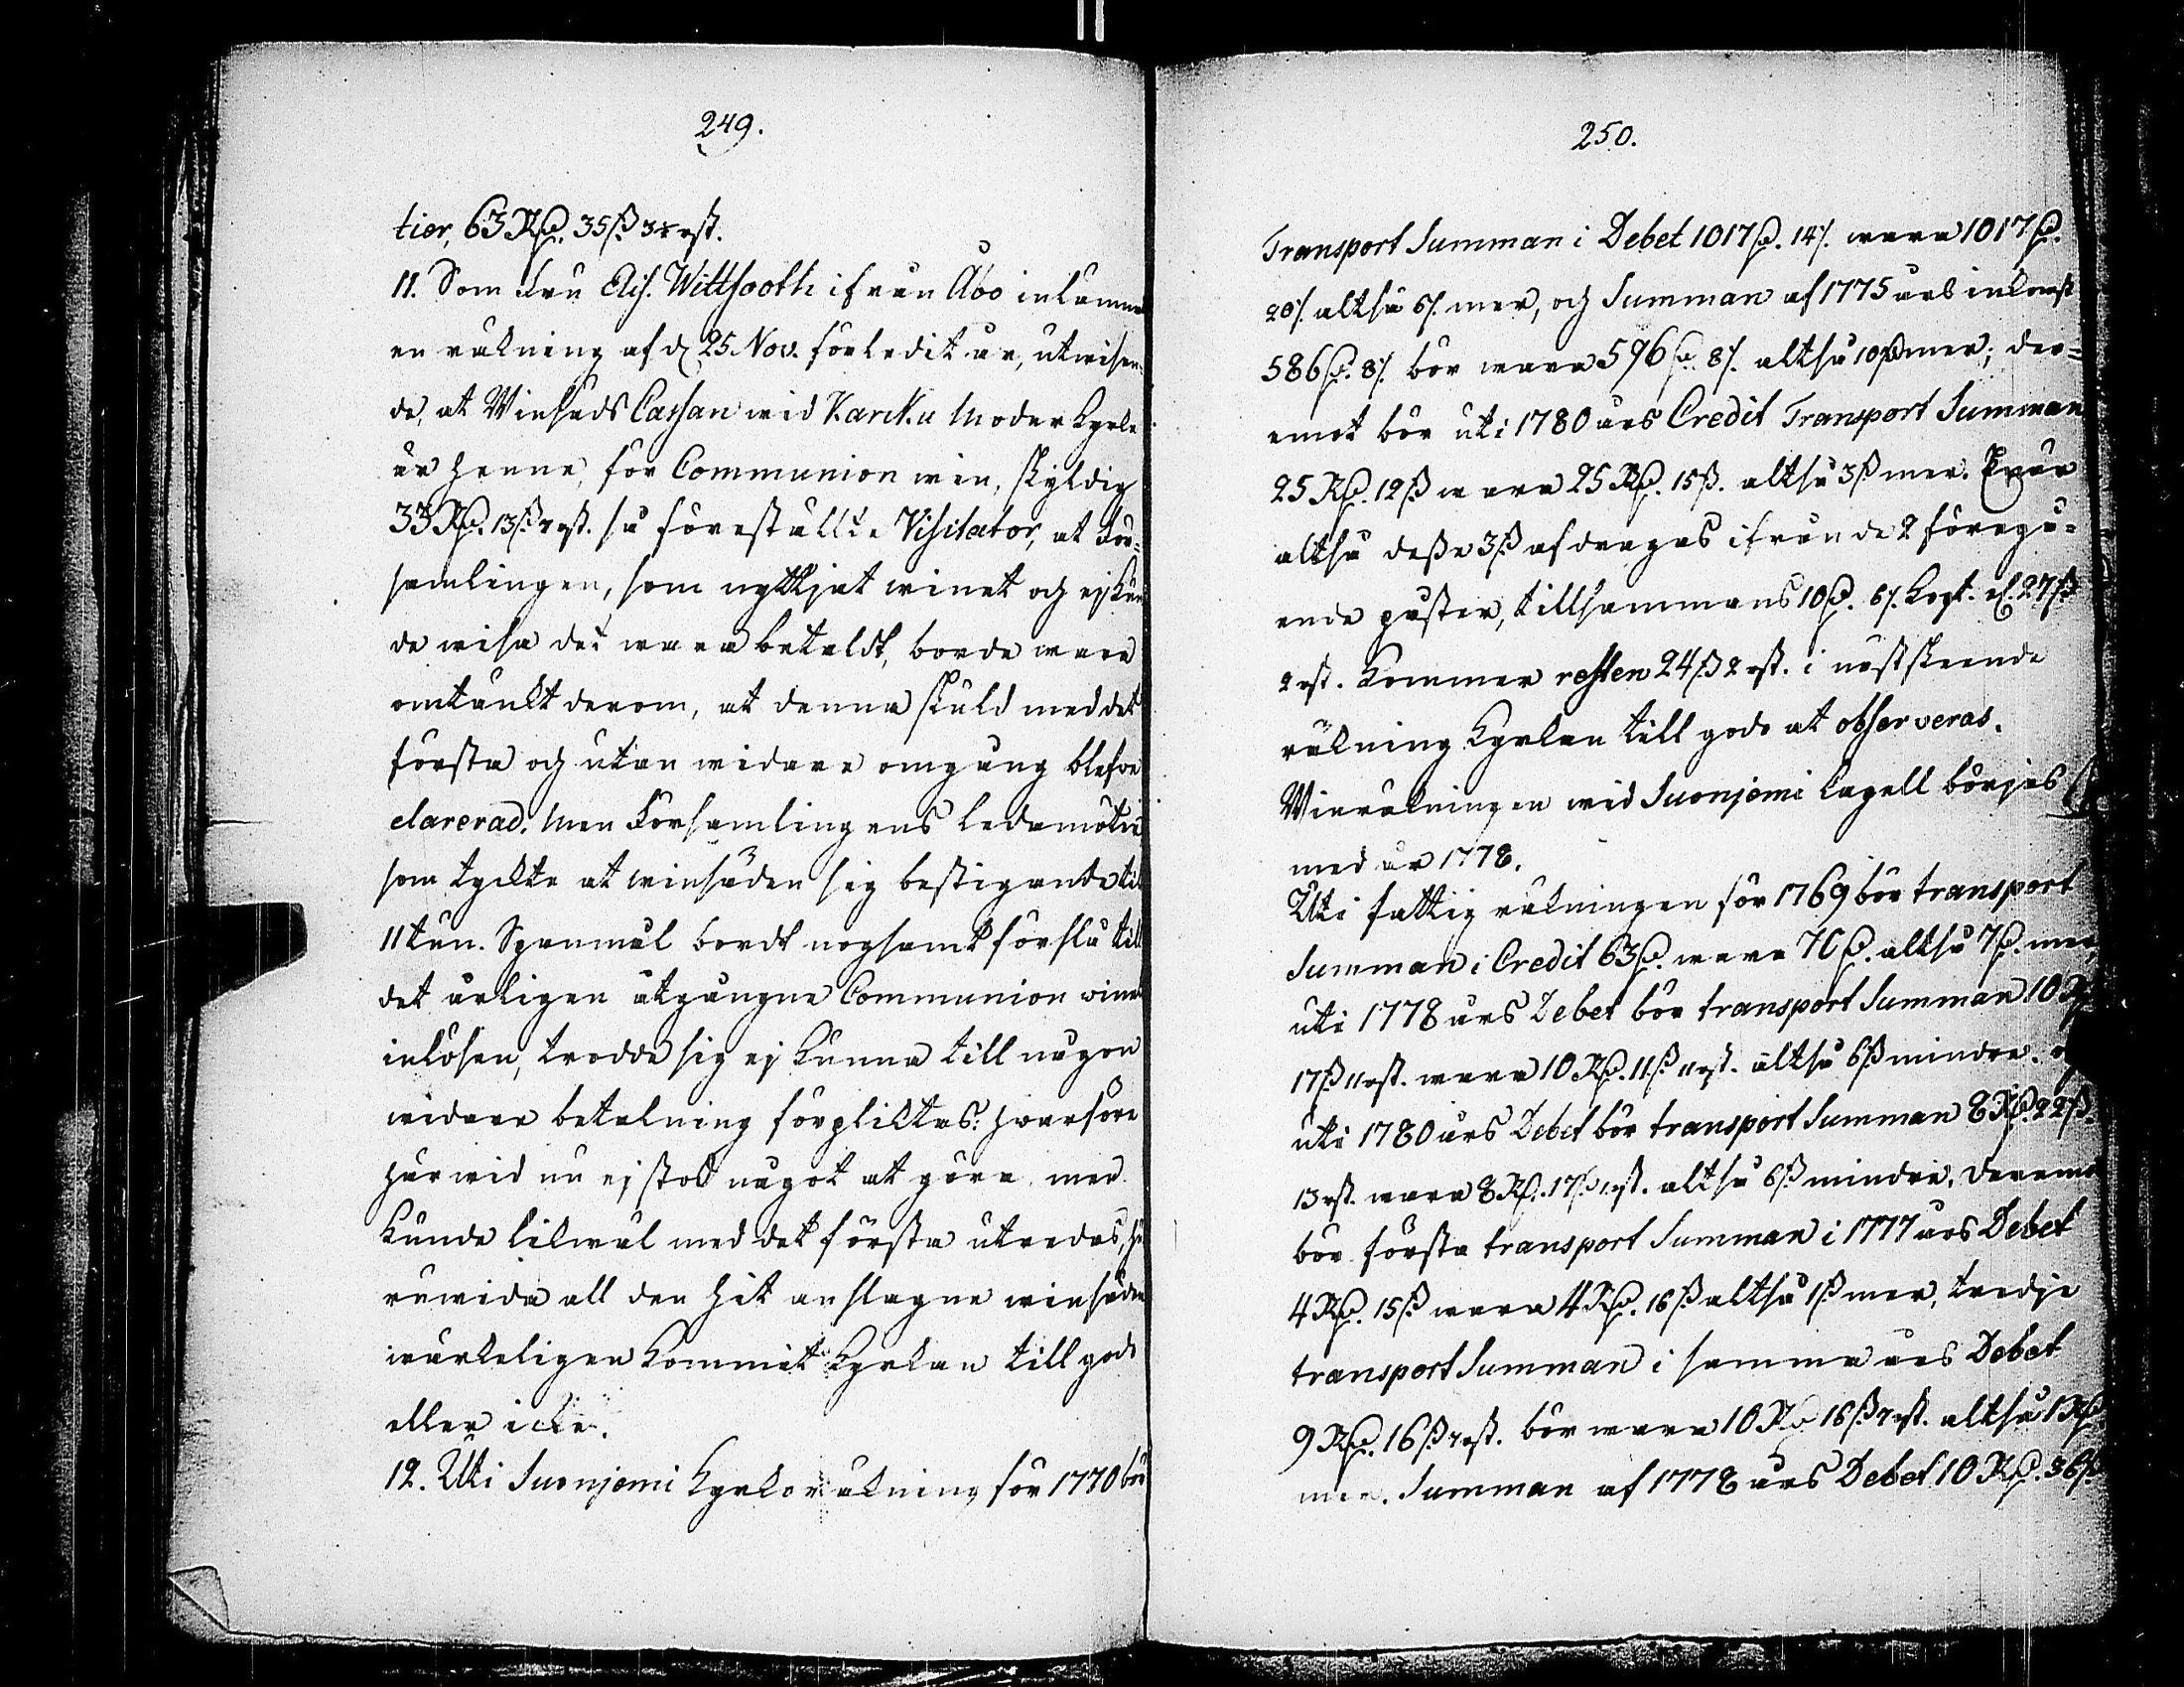 249.
tier, 63 Rd. 35 ß 3 rst.
11. Som Fru Elis. Wittfooth ifrån Åbo inlämnat
en räkning af d. 25 Nov. förledit år, utwisan-
de, at Winsäds Cassan wid Karcku Moder Kyrka
är henne, för Communion win, skyldig
33 Rd. 13 ß 7 rst. så föreställte Visitator, at För-
samlingen, som nyttjat winet och ej kun-
de wisa det wara betaldt, borde wara
omtänkt derom, at denna skuld med det
första och utan widare omgång blefwe
clarerad. Men Församlingens ledamöter
som tyckte at winsäden sig bestigande til
11 tun. Spanmål bordt nogsamt förslå till
det årligen åtgångne Communion winets
inlösen, trodde sig ej kunna till någon
widare betalning förpliktas: hwarföre
härwid nu ej stod något at göra, men
kunde likwäl med det första utredas, hu-
ruwida all den hit anslagne winsäden
wärkeligen kommit Kyrkan till godo
eller icke.
12. Uti Suonjemi Kyrko räkning för 1770 bör
250.
Transport Summan i Debet 1017 d. 14/. wara 1017 d.
20/. altså 6/. mer, och Summan af 1775 års inkomst
586 d. 8/. bör wara 596 d. 8/. altså 10 d mer; der-
emot bör uti 1780 års Credit Transport Summan
25 Rd. 12 ß wara 25 Rd. 15 ß. altså 3 ß mer. När
altså desse 3 ß afdragas ifrån de 2 föregå-
ende poster, tillsammans 10 d. 6/. Kopt. el. 27 ß
2 rst. kommer resten 24 ß 2 rst. i nästskeende
räkning Kyrkan till godo at observeras.
Winräkningen wid Suonjemi Capell börjas
med år 1778.
Uti fattig räkningen för 1769 bör transport
Summan i Credit 63 d. wara 70 d. altså 7 d. mer,
uti 1778 års Debet bör transport Summan 10 Rd
17 ß 11 rst. wara 10 Rd. 11 ß 11 rst. altså 6 ß mindre.
uti 1780 års Debet bör transport Summan 8 Rd. 22 ß.
13 rst. wara 8 Rd. 17 ß 1 rst. altså 6 ß mindre. Deremot
bör första transport Summan i 1777 års Debet
4 Rd. 15 ß wara 4 Rd. 16 ß altså 1 ß mer, tredje
transport Summan i samma års Debet
9 Rd. 16 ß 7 rst. bör wara 10 Rd 16 ß 7 rst. altså 1 Rd
mer. Summan af 1778 års Debet 10 Rd. 36 ß